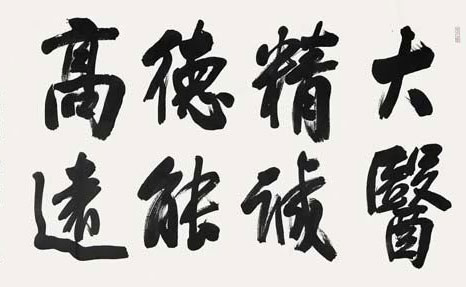 大醫
精誠
德能
高遠